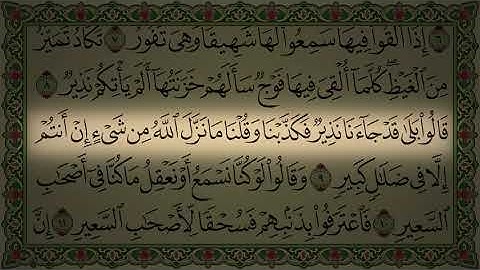 إِذَآ أُلْقُوا۟ فِيهَا سَمِعُوا۟ لَهَا شَهِيقًا وَهِىَ تَفُورُ ٧ تَكَادُ تَمَيَّزُ
مِنَ ٱلْغَيْظِ كُلَّمَآ أُلْقِىَ فِيهَا فَوْجٌ سَأَلَهُمْ خَزَنَتُهَآ أَلَمْ يَأْتِكُمْ نَذِيرٌ ٨
قَالُوا۟ بَلَىٰ قَدْ جَآءَنَا نَذِيرٌ فَكَذَّبْنَا وَقُلْنَا مَا نَزَّلَ ٱللَّهُ مِن شَىْءٍ إِنْ أَنتُمْ
إِلَّا فِى ضَلَٰلٍ كَبِيرٍ ٩ وَقَالُوا۟ لَوْ كُنَّا نَسْمَعُ أَوْ نَعْقِلُ مَا كُنَّا فِىٓ أَصْحَٰبِ
ٱلسَّعِيرِ ١٠ فَٱعْتَرَفُوا۟ بِذَنۢبِهِمْ فَسُحْقًا لِّأَصْحَٰبِ ٱلسَّعِيرِ ١١ إِنَّ